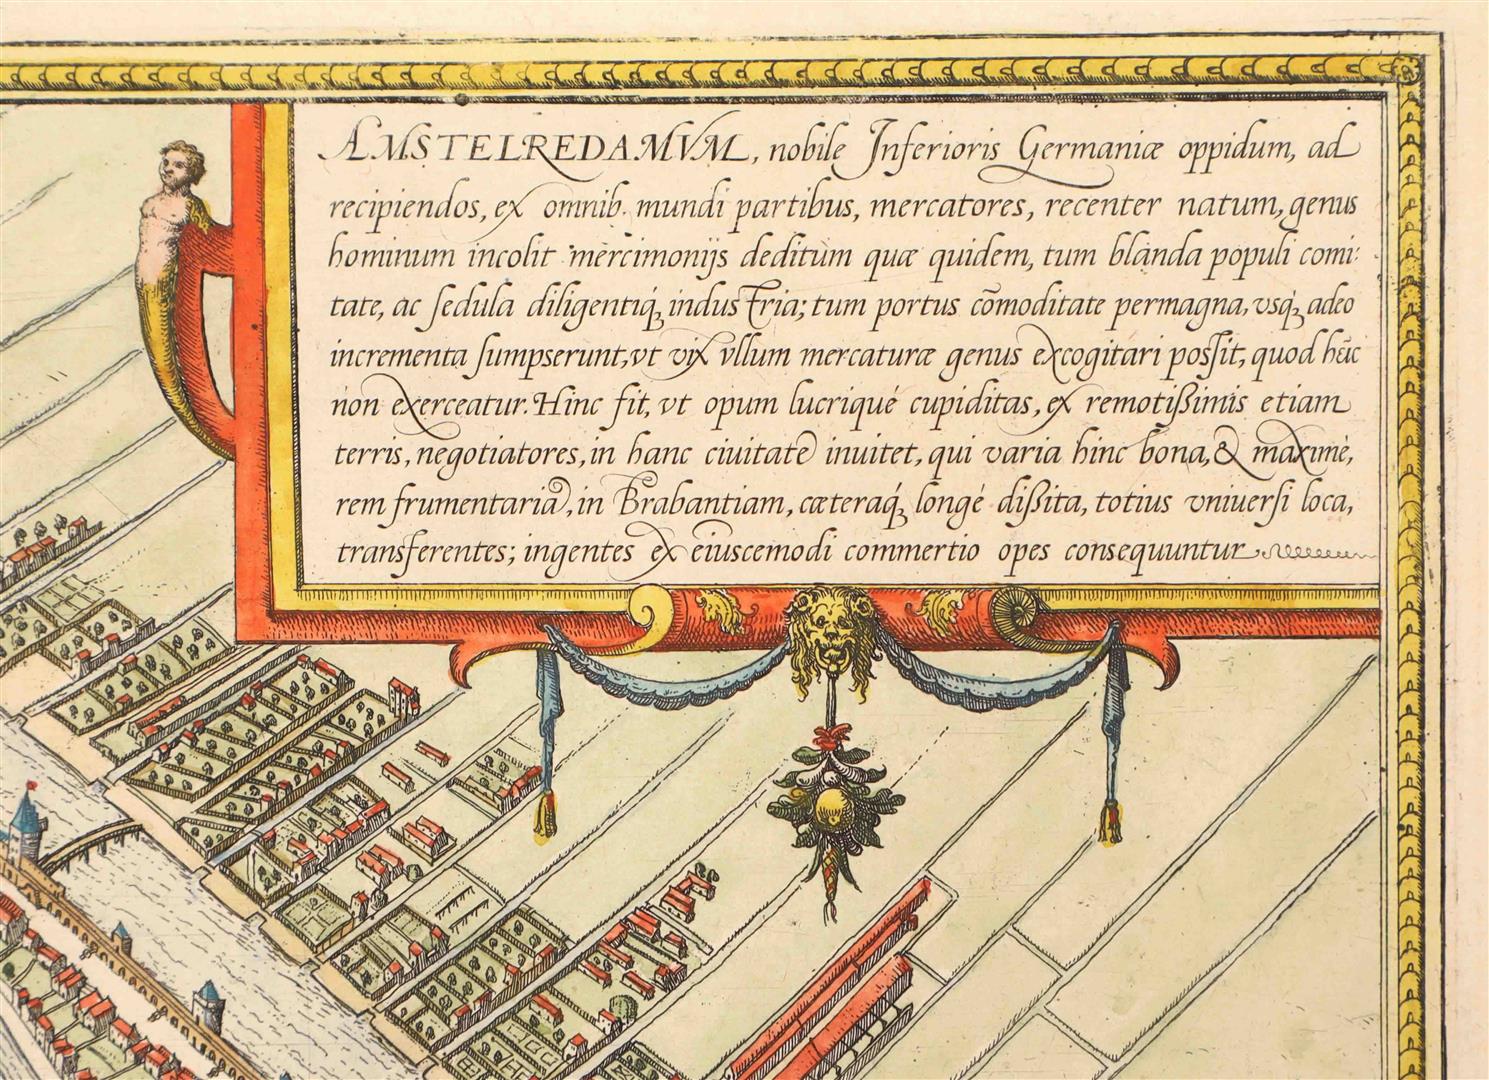 AMSTELREDAMVM, nobile Inferioris Germaniæ oppidum, ad
recipiendos, ex omnib. mundi partibus, mercatores, recenter natum, genus
hominum incolit mercimonijs deditum quæ quidem, tum blanda populi comi:
tate, ac sedula diligentiq́ꝫ industria; tum portus cōmoditate permagna, vsq́ꝫ adeo
incrementa sumpserunt, vt vix vllum mercaturæ genus excogitari possit, quod hæc
non exerceatur. Hinc fit, vt opum lucriqué cupiditas, ex remotißimis etiam
terris, negotiatores, in hanc ciuitatē inuitet, qui varia hinc bona, & maximè,
rem frumentariā, in Brabantiam, cæteraq́ꝫ longè dißita, totius vniuersi loca,
transferentes; ingentes ex eiuscemodi commertio opes consequuntur